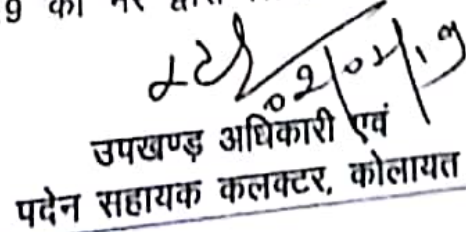 9 को
02/02/19
उपखण्ड़ अधिकारी एवं
पदेन सहायक कलक्टर, कोलायत